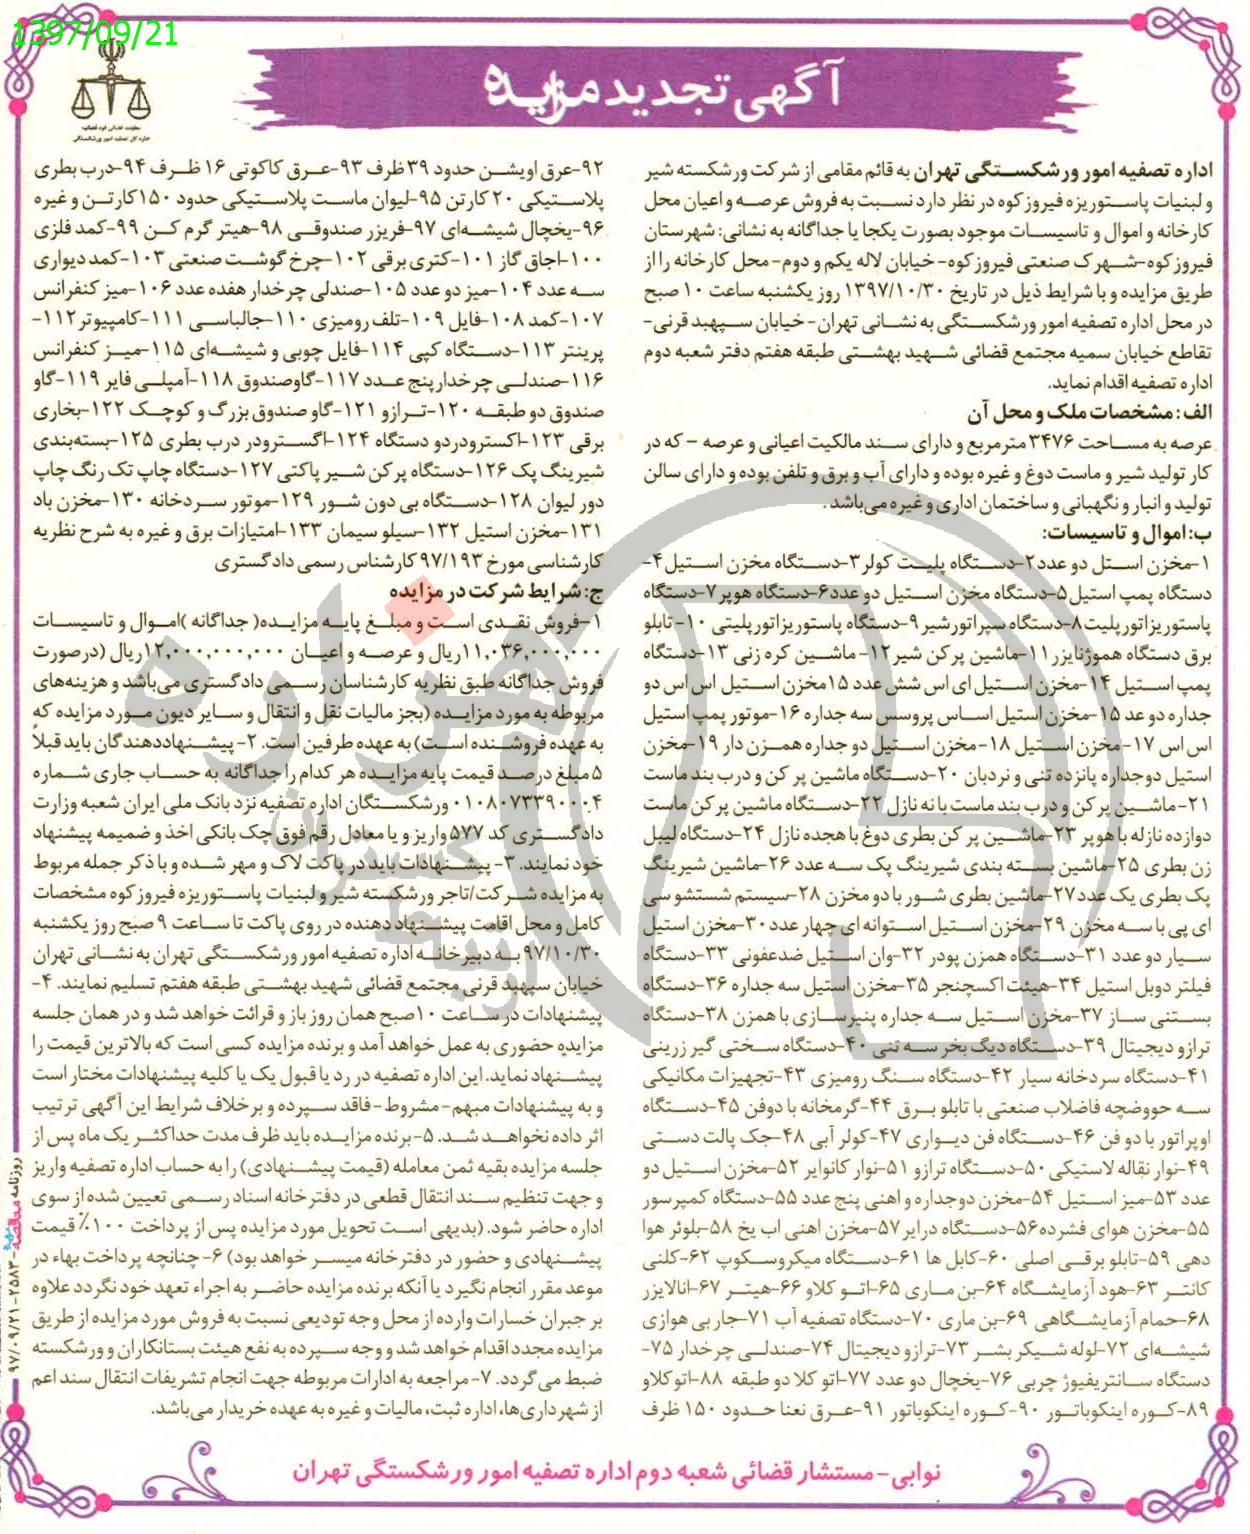 1397/09/21
آگهی تجدید مزایده
معاونت قضائی قوه قضائیه
اداره کل تصفیه امور ورشکستگی
اداره تصفیه امور ورشکستگی تهران به قائم مقامی از شرکت ورشکسته شیر
و لبنیات پاستوریزه فیروزکوه در نظر دارد نسبت به فروش عرصه و اعیان محل
کارخانه و اموال و تاسیسات موجود بصورت یکجا یا جداگانه به نشانی: شهرستان
فیروزکوه-شهرک صنعتی فیروزکوه- خیابان لاله یکم و دوم- محل کارخانه را از
طریق مزایده و با شرایط ذیل در تاریخ ۱۳۹۷/۱۰/۳۰ روز یکشنبه ساعت ۱۰ صبح
در محل اداره تصفیه امور ورشکستگی به نشانی تهران- خیابان سپهبد قرنی-
تقاطع خیابان سمیه مجتمع قضائی شهید بهشتی طبقه هفتم دفتر شعبه دوم
اداره تصفیه اقدام نماید.
الف: مشخصات ملک و محل آن
عرصه به مساحت ۳۴۷۶ مترمربع و دارای سند مالکیت اعیانی و عرصه – که در
کار تولید شیر و ماست دوغ و غیره بوده و دارای آب و برق و تلفن بوده و دارای سالن
تولید و انبار و نگهبانی و ساختمان اداری و غیره می‌باشد.
ب: اموال و تاسیسات:
۱-مخزن استل دو عدد۲-دستگاه پلیت کولر۳-دستگاه مخزن استیل۴-
دستگاه پمپ استیل۵-دستگاه مخزن استیل دو عدد۶-دستگاه هوپر۷-دستگاه
پاستوریزاتور پلیت۸-دستگاه سپراتور شیر۹-دستگاه پاستوریزاتور پلیتی ۱۰-تابلو
برق دستگاه هموژنایزر۱۱-ماشین پر کن شیر۱۲-ماشین کره زنی ۱۳-دستگاه
پمپ استیل ۱۴-مخزن استیل ای اس شش عدد ۱۵مخزن استیل اس اس دو
جداره دو عد ۱۵-مخزن استیل اساس پروسس سه جداره ۱۶-موتور پمپ استیل
اس اس ۱۷-مخزن استیل ۱۸-مخزن استیل دو جداره همزن دار ۱۹-مخزن
استیل دوجداره پانزده تنی و نردبان ۲۰-دستگاه ماشین پر کن و درب بند ماست
۲۱-ماشین پر کن و درب بند ماست با نه نازل ۲۲-دستگاه ماشین پر کن ماست
دوازده نازله با هوپر ۲۳-ماشین پر کن بطری دوغ با هجده نازل ۲۴-دستگاه لیبل
زن بطری ۲۵-ماشین بسته بندی شیرینگ پک سه عدد ۲۶-ماشین شیرینگ
پک بطری یک عدد۲۷-ماشین بطری شور با دو مخزن ۲۸-سیستم شستشو سی
ای پی با سه مخزن ۲۹-مخزن استیل استوانه ای چهار عدد۳۰-مخزن استیل
سیار دو عدد ۳۱-دستگاه همزن پودر ۳۲-وان استیل ضدعفونی ۳۳-دستگاه
فیلتر دوبل استیل ۳۴-هیئت اکسچنجر ۳۵-مخزن استیل سه جداره ۳۶-دستگاه
بستنی ساز ۳۷-مخزن استیل سه جداره پنیرسازی با همزن ۳۸-دستگاه
ترازو دیجیتال ۳۹-دستگاه دیگ بخر سه تنی ۴۰-دستگاه سختی گیر زرینی
۴۱-دستگاه سردخانه سیار ۴۲-دستگاه سنگ رومیزی ۴۳-تجهیزات مکانیکی
سه حووضچه فاضلاب صنعتی با تابلو برق ۴۴-گرمخانه با دو فن ۴۵-دستگاه
اوپراتور با دو فن ۴۶-دستگاه فن دیواری ۴۷-کولر آبی ۴۸-جک پالت دستی
۴۹-نوار نقاله لاستیکی ۵۰-دستگاه ترازو ۵۱-نوار کانوایر ۵۲-مخزن استیل دو
عدد ۵۳-میز استیل ۵۴-مخزن دوجداره و اهنی پنج عدد ۵۵-دستگاه کمپرسور
۵۵-مخزن هوای فشرده۵۶-دستگاه درایر ۵۷-مخزن اهنی اب یخ ۵۸-بلوئر هوا
دهی ۵۹-تابلو برقی اصلی ۶۰-کابل ها ۶۱-دستگاه میکروسکوپ ۶۲-کلنی
کانتر ۶۳-هود آزمایشگاه ۶۴-بن ماری ۶۵-اتو کلاو ۶۶-هیتر ۶۷-انالایزر
۶۸-حمام آزمایشگاهی ۶۹-بن ماری ۷۰-دستگاه تصفیه آب ۷۱-جار بی هوازی
شیشه‌ای ۷۲-لوله شیکر بشر ۷۳-ترازو دیجیتال ۷۴-صندلی چرخدار ۷۵-
دستگاه سانتریفیوژ چربی ۷۶-یخچال دو عدد ۷۷-اتو کلا دو طبقه ۸۸-اتوکلاو
۸۹-کوره اینکوباتور ۹۰-کوره اینکوباتور ۹۱-عرق نعنا حدود ۱۵۰ ظرف
۹۲-عرق اویشن حدود ۳۹ ظرف ۹۳-عرق کاکوتی ۱۶ ظرف ۹۴-درب بطری
پلاستیکی ۲۰ کارتن ۹۵-لیوان ماست پلاستیکی حدود ۱۵۰کارتن و غیره
۹۶-یخچال شیشه‌ای ۹۷-فریزر صندوقی ۹۸-هیتر گرم کن ۹۹-کمد فلزی
۱۰۰-اجاق گاز ۱۰۱-کتری برقی ۱۰۲-چرخ گوشت صنعتی ۱۰۳-کمد دیواری
سه عدد ۱۰۴-میز دو عدد ۱۰۵-صندلی چرخدار هفده عدد ۱۰۶-میز کنفرانس
۱۰۷-کمد ۱۰۸-فایل ۱۰۹-تلف رومیزی ۱۱۰-جالباسی ۱۱۱-کامپیوتر ۱۱۲-
پرینتر ۱۱۳-دستگاه کپی ۱۱۴-فایل چوبی و شیشه‌ای ۱۱۵-میز کنفرانس
۱۱۶-صندلی چرخدار پنج عدد ۱۱۷-گاوصندوق ۱۱۸-آمپلی فایر ۱۱۹-گاو
صندوق دو طبقه ۱۲۰-ترازو ۱۲۱-گاو صندوق بزرگ و کوچک ۱۲۲-بخاری
برقی ۱۲۳-اکسترودردو دستگاه ۱۲۴-اگسترودر درب بطری ۱۲۵-بسته‌بندی
شیرینگ پک ۱۲۶-دستگاه پر کن شیر پاکتی ۱۲۷-دستگاه چاپ تک رنگ چاپ
دور لیوان ۱۲۸-دستگاه بی دون شور ۱۲۹-موتور سردخانه ۱۳۰-مخزن باد
۱۳۱-مخزن استیل ۱۳۲-سیلو سیمان ۱۳۳-امتیازات برق و غیره به شرح نظریه
کارشناسی مورخ ۹۷/۱۹۳ کارشناس رسمی دادگستری
ج: شرایط شرکت در مزایده
۱-فروش نقدی است و مبلغ پایه مزایده( جداگانه )اموال و تاسیسات
۱۱,۰۳۶,۰۰۰,۰۰۰ریال و عرصه و اعیان ۱۲,۰۰۰,۰۰۰,۰۰۰ریال (درصورت
فروش جداگانه طبق نظریه کارشناسان رسمی دادگستری می‌باشد و هزینه‌های
مربوطه به مورد مزایده (بجز مالیات نقل و انتقال و سایر دیون مورد مزایده که
به عهده فروشنده است) به عهده طرفین است. ۲- پیشنهاددهندگان باید قبلاً
۵ مبلغ درصد قیمت پایه مزایده هر کدام را جداگانه به حساب جاری شماره
۰۱۰۸۰۷۳۳۹۰۰۰۴ ورشکستگان اداره تصفیه نزد بانک ملی ایران شعبه وزارت
دادگستری کد ۵۷۷ واریز و یا معادل رقم فوق چک بانکی اخذ و ضمیمه پیشنهاد
خود نمایند. ۳- پیشنهادات باید در پاکت لاک و مهر شده و با ذکر جمله مربوط
به مزایده شرکت/تاجر ورشکسته شیر و لبنیات پاستوریزه فیروزکوه مشخصات
کامل و محل اقامت پیشنهاد دهنده در روی پاکت تا ساعت ۹ صبح روز یکشنبه
۹۷/۱۰/۳۰ به دبیرخانه اداره تصفیه امور ورشکستگی تهران به نشانی تهران
خیابان سپهبد قرنی مجتمع قضائی شهید بهشتی طبقه هفتم تسلیم نمایند. ۴-
پیشنهادات در ساعت ۱۰صبح همان روز باز و قرائت خواهد شد و در همان جلسه
مزایده حضوری به عمل خواهد آمد و برنده مزایده کسی است که بالاترین قیمت را
پیشنهاد نماید. این اداره تصفیه در رد یا قبول یک یا کلیه پیشنهادات مختار است
و به پیشنهادات مبهم- مشروط- فاقد سپرده و برخلاف شرایط این آگهی ترتیب
اثر داده نخواهد شد. ۵- برنده مزایده باید ظرف مدت حداکثر یک ماه پس از
جلسه مزایده بقیه ثمن معامله (قیمت پیشنهادی) را به حساب اداره تصفیه واریز
و جهت تنظیم سند انتقال قطعی در دفترخانه اسناد رسمی تعیین شده از سوی
اداره حاضر شود. (بدیهی است تحویل مورد مزایده پس از پرداخت ۱۰۰٪ قیمت
پیشنهادی و حضور در دفترخانه میسر خواهد بود) ۶- چنانچه پرداخت بهاء در
موعد مقرر انجام نگیرد یا آنکه برنده مزایده حاضر به اجراء تعهد خود نگردد علاوه
بر جبران خسارات وارده از محل وجه تودیعی نسبت به فروش مورد مزایده از طریق
مزایده مجدد اقدام خواهد شد و وجه سپرده به نفع هیئت بستانکاران و ورشکسته
ضبط می گردد. ۷- مراجعه به ادارات مربوطه جهت انجام تشریفات انتقال سند اعم
از شهرداری‌ها، اداره ثبت، مالیات و غیره به عهده خریدار می‌باشد.
نوابی- مستشار قضائی شعبه دوم اداره تصفیه امور ورشکستگی تهران
روزنامه مناقصه مزایده - ۲۵۸۳ - ۹۷/۰۹/۲۱